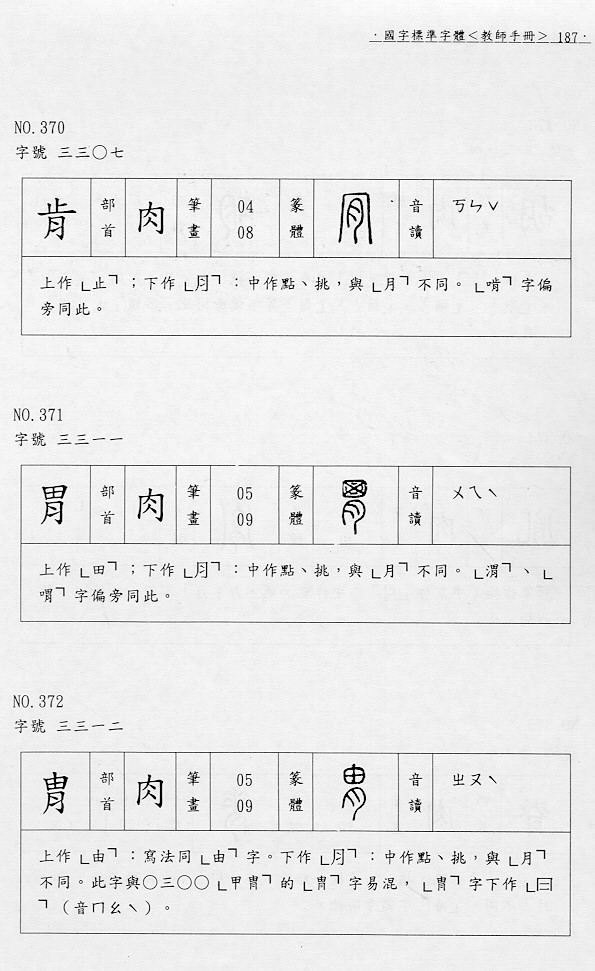 ·國字標準字體<教師手冊> 187·
NO.370
字號 三三〇七
肯 部首 肉 筆畫 04 08 篆體 音讀 ㄎㄣˇ
上作「止」；下作「⺼」：中作點、挑，與「月」不同。「啃」字偏
旁同此。
NO.371
字號 三三一一
胃 部首 肉 筆畫 05 09 篆體 音讀 ㄨㄟˋ
上作「田」；下作「⺼」：中作點、挑，與「月」不同。「渭」、「
喟」字偏旁同此。
NO.372
字號 三三一二
胄 部首 肉 筆畫 05 09 篆體 音讀 ㄓㄡˋ
上作「由」：寫法同「由」字。下作「⺼」：中作點、挑，與「月」
不同。此字與〇三〇〇「甲冑」的「冑」字易混，「冑」字下作「冃
」（音ㄇㄠˋ）。